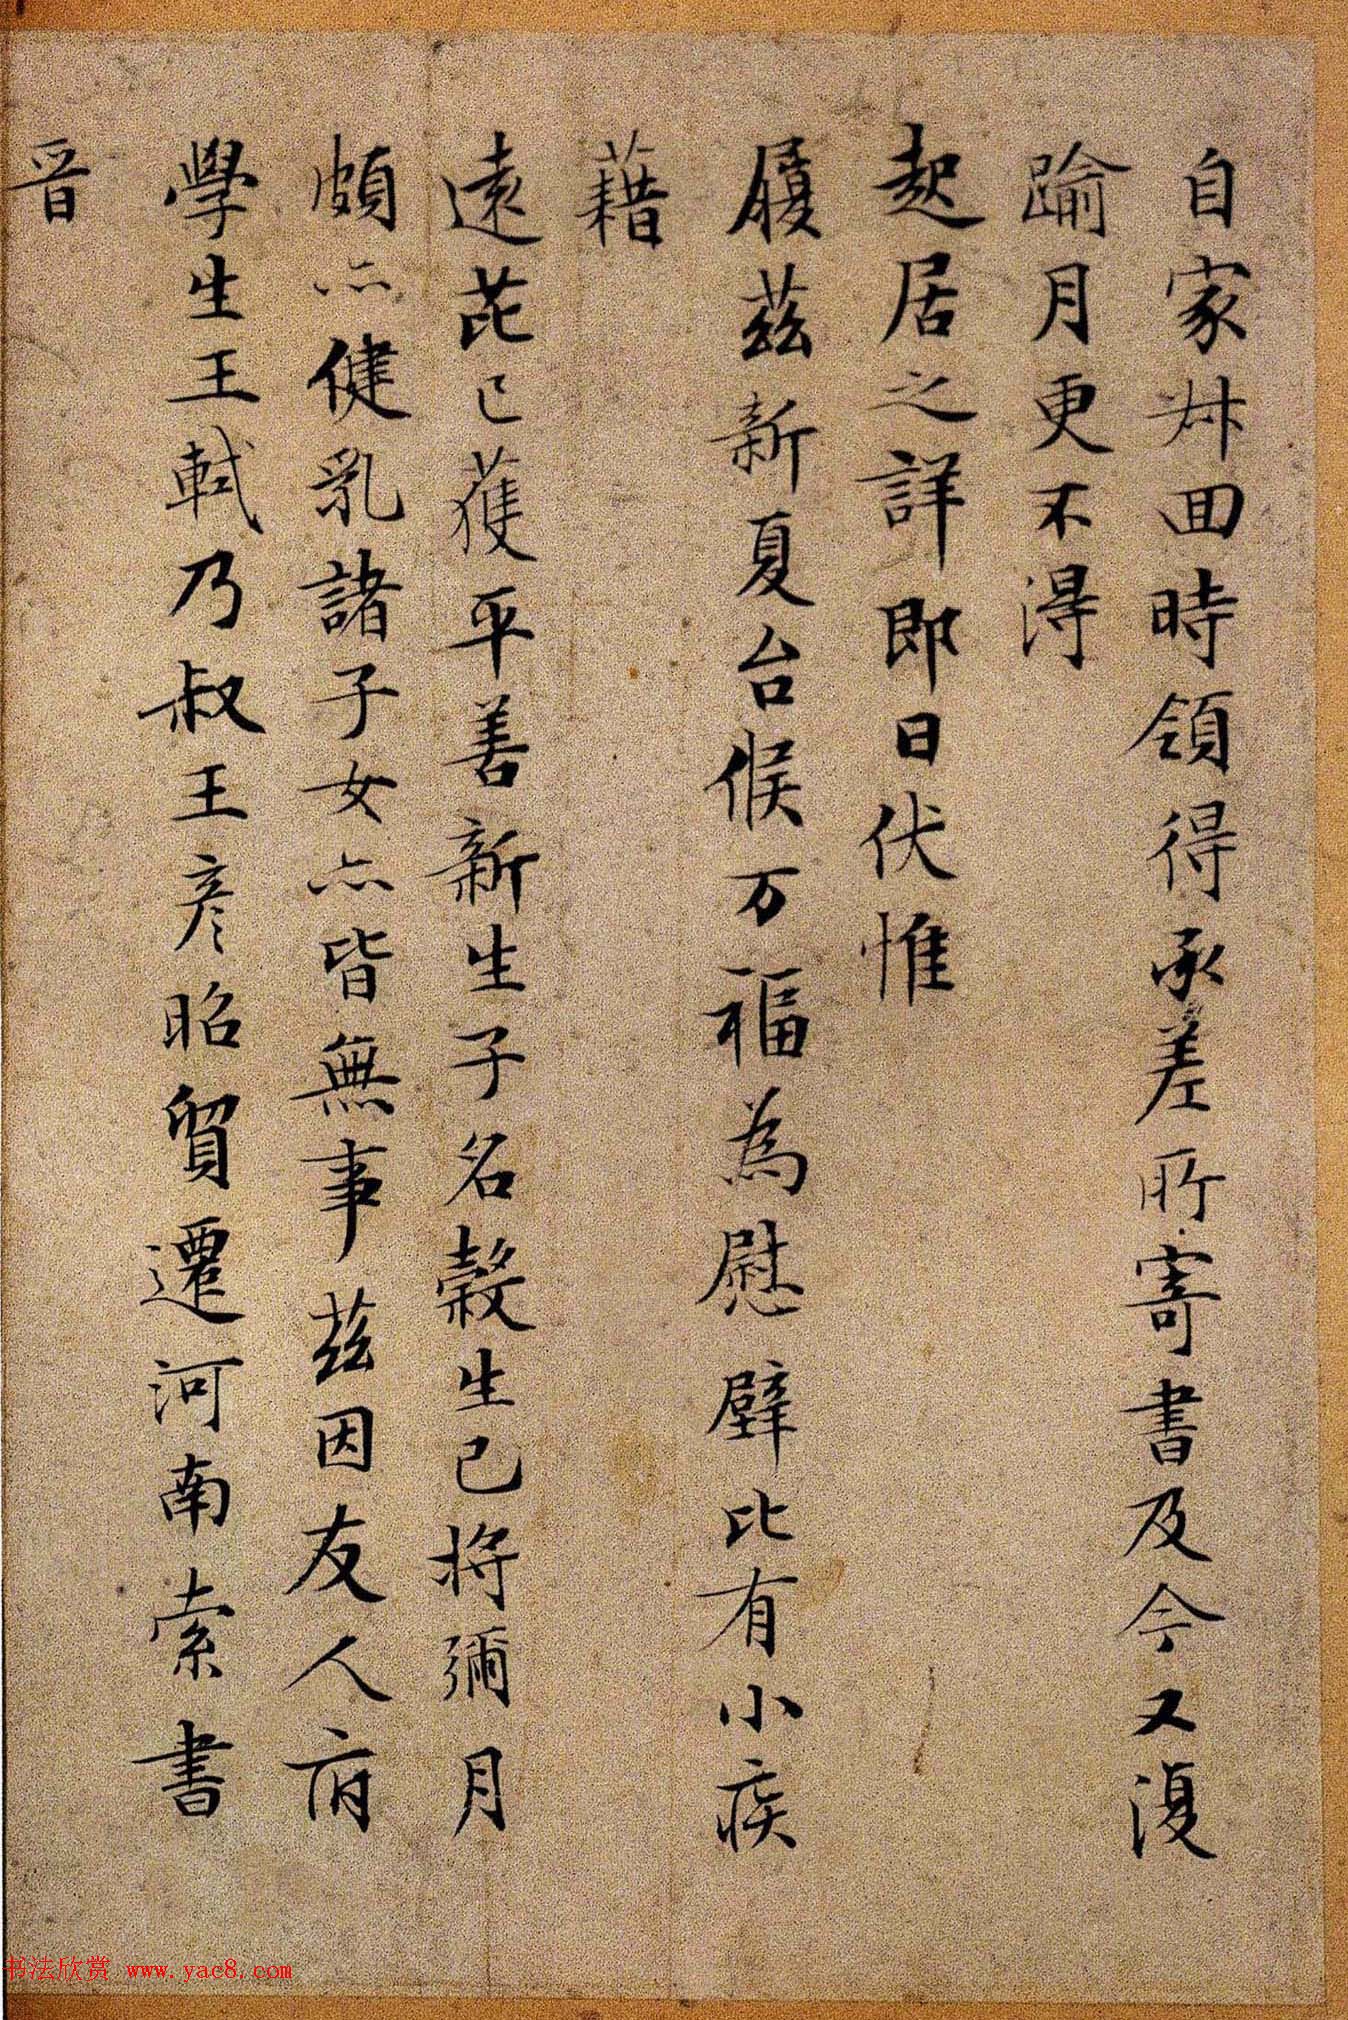 自家叔回時領得承差所寄書及今又復
踰月更不得
起居之詳即日伏惟
履茲新夏台候万福為慰壁比有小疾
藉
遠芘已獲平善新生子名穀生已将彌月
頗亦健乳諸子女亦皆無事茲因友人府
學生王軾乃叔王彦昭貿遷河南索書
晋
书法欣赏 www.yac8.com